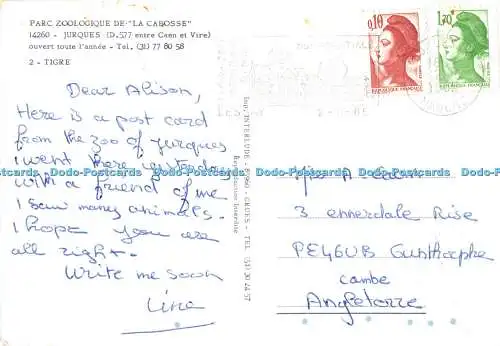 PARC ZOOLOGIQUE DE "LA CABOSSE"
14260 - JURQUES (D.577 entre Caen et Vire)
ouvert toute l'année - Tel. (31) 77 80 58
2 - TIGRE
Dear Alison,
Here is a post card
from the zoo of Jurques
I went there yesterday
with a friend of me
I saw many animals.
I hope you are
all right.
Write me soon
Line
Imp. INTERLUDE - GRUES - TEL. (51) 30 24 57
Reproduction Interdite
0,10
REPUBLIQUE FRANÇAISE
1,70
REPUBLIQUE FRANÇAISE
Miss A.
3 ennerdale Rise
PE46UB Gunthorphe
cambe
Angleterre
Dodo-Postcards Dodo-Postcards Dodo-Postcards Dodo-Postcards